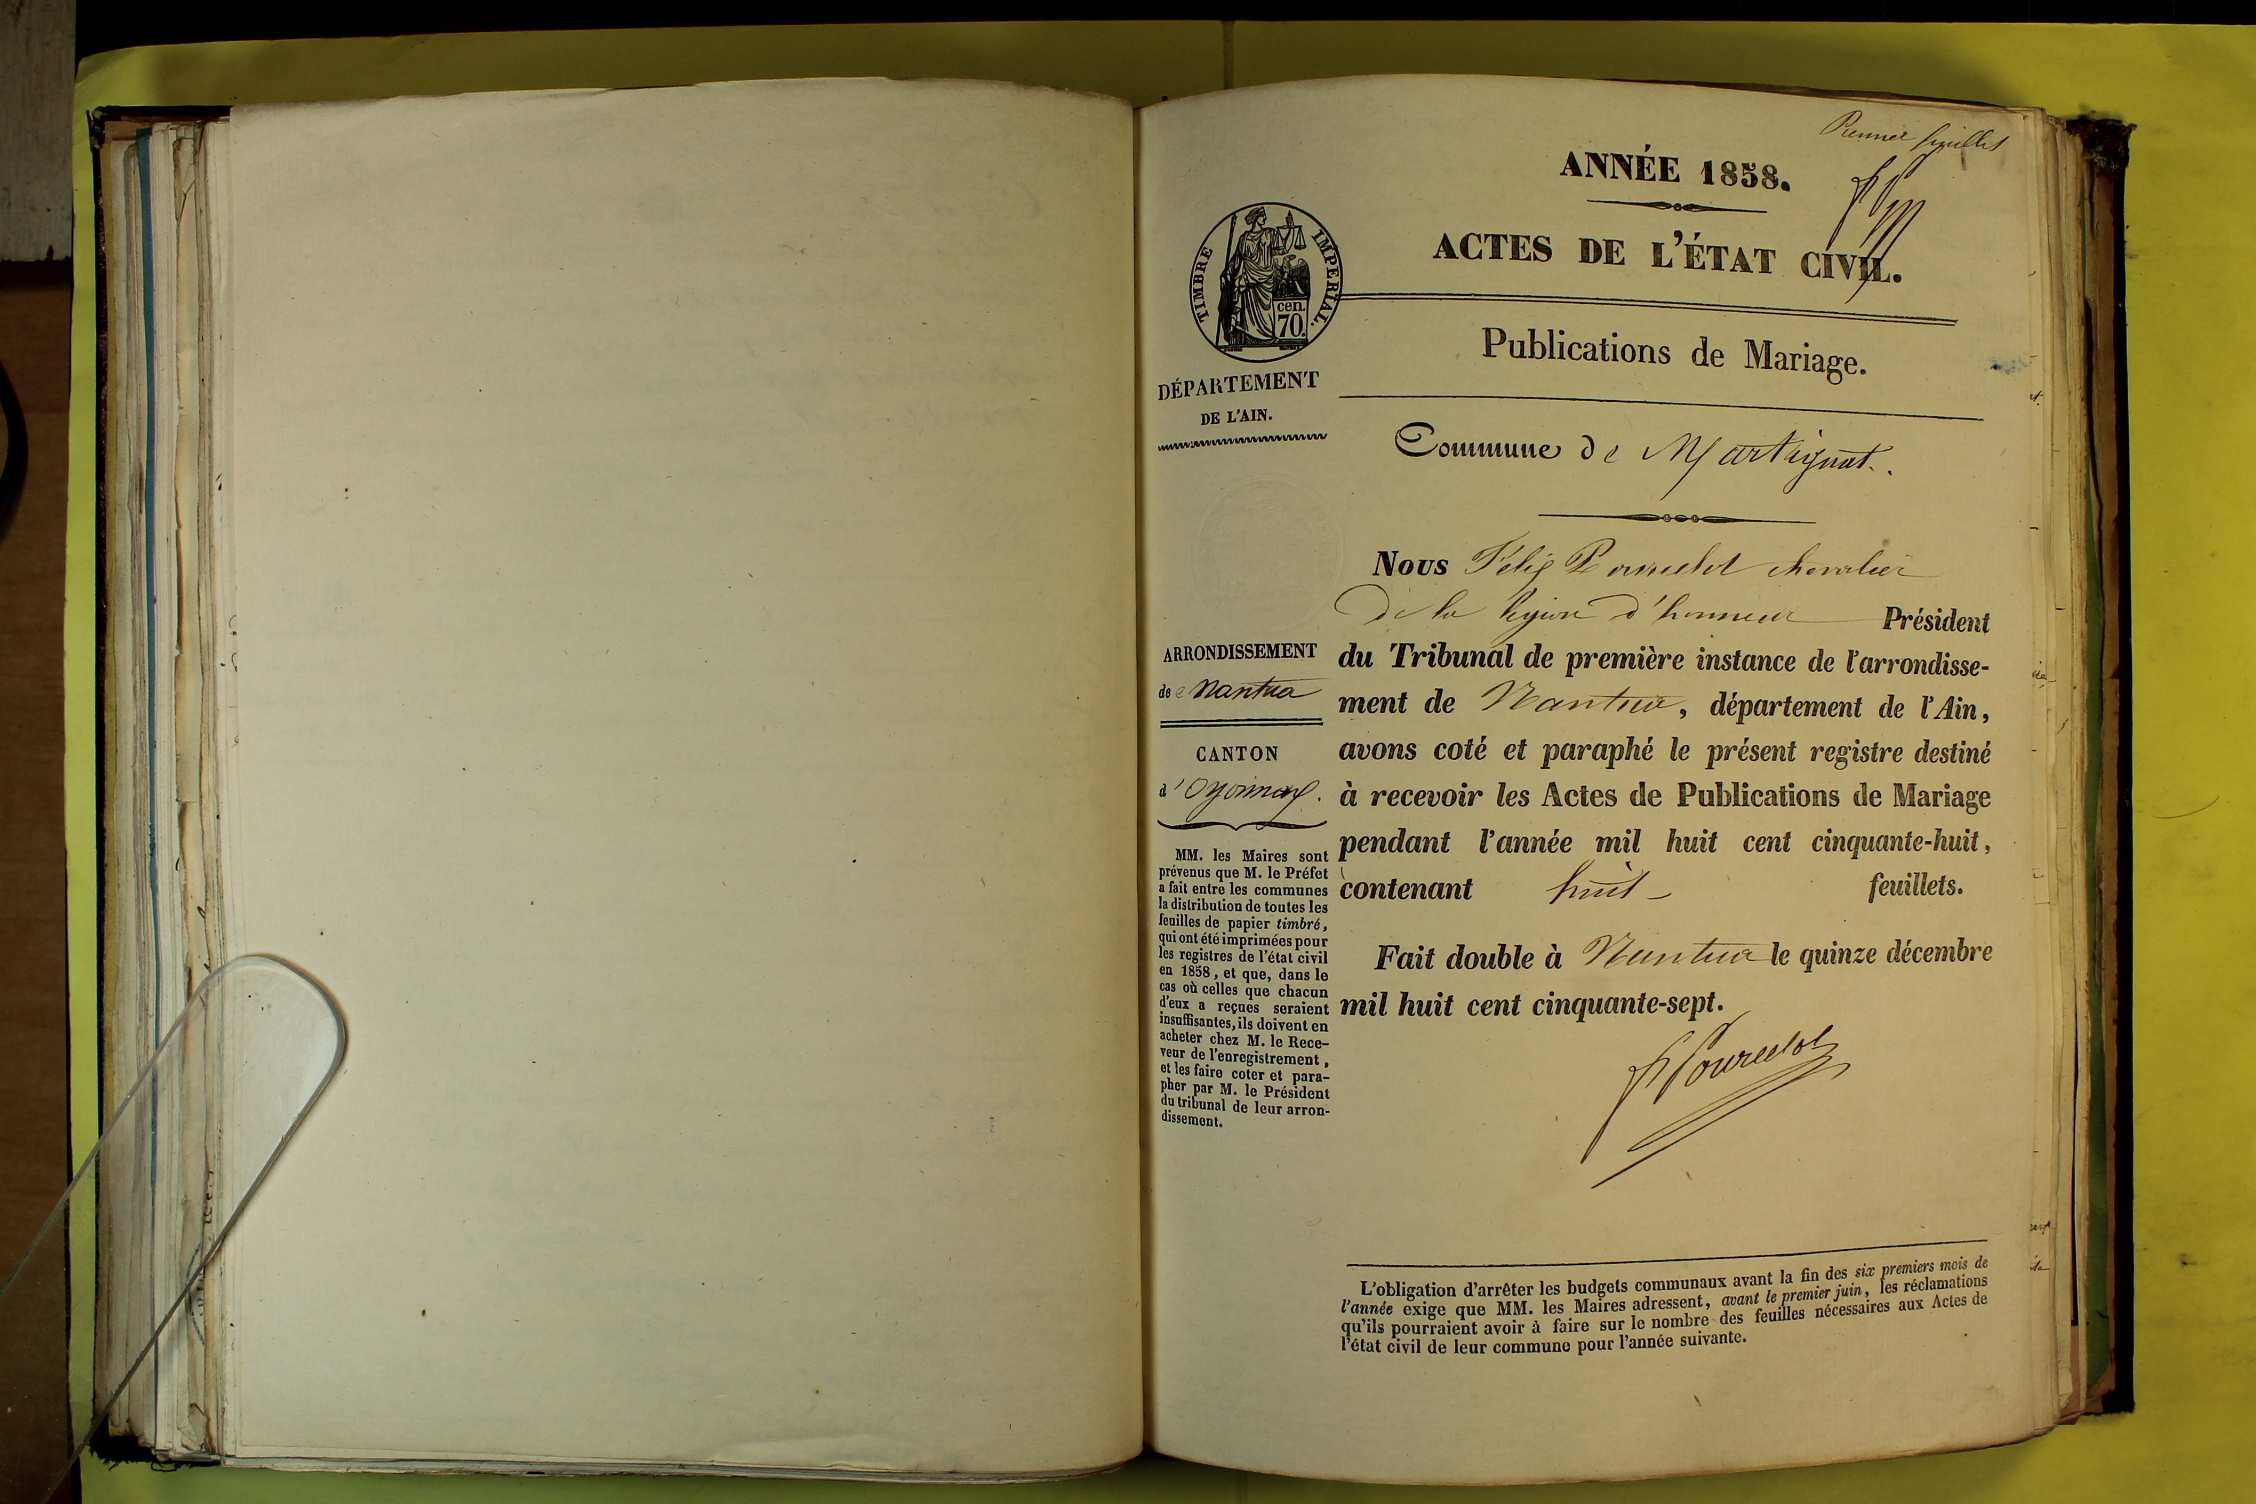 Premier feuillet
ANNÉE 1858.
ACTES DE L'ÉTAT CIVIL.
TIMBRE IMPERIAL.
cen.
70.
Publications de Mariage.
DÉPARTEMENT
DE L'AIN.
Commune de Martignat.
Nous Félix chevalier
de la légion d'honneur Président
du Tribunal de première instance de l'arrondisse-
ment de Nantua, département de l'Ain,
avons coté et paraphé le présent registre destiné
à recevoir les Actes de Publications de Mariage
pendant l'année mil huit cent cinquante-huit,
contenant huit feuillets.
Fait double à Nantua le quinze décembre
mil huit cent cinquante-sept.
ARRONDISSEMENT
de Nantua
CANTON
d'Oyonnax.
MM. les Maires sont
prévenus que M. le Préfet
a fait entre les communes
la distribution de toutes les
feuilles de papier timbré,
qui ont été imprimées pour
les registres de l'état civil
en 1858, et que, dans le
cas où celles que chacun
d'eux a reçues seraient
insuffisantes, ils doivent en
acheter chez M. le Rece-
veur de l'enregistrement,
et les faire coter et para-
pher par M. le Président
du tribunal de leur arron-
dissement.
L'obligation d'arrêter les budgets communaux avant la fin des six premiers mois de
l'année exige que MM. les Maires adressent, avant le premier juin, les réclamations
qu'ils pourraient avoir à faire sur le nombre des feuilles nécessaires aux Actes de
l'état civil de leur commune pour l'année suivante.